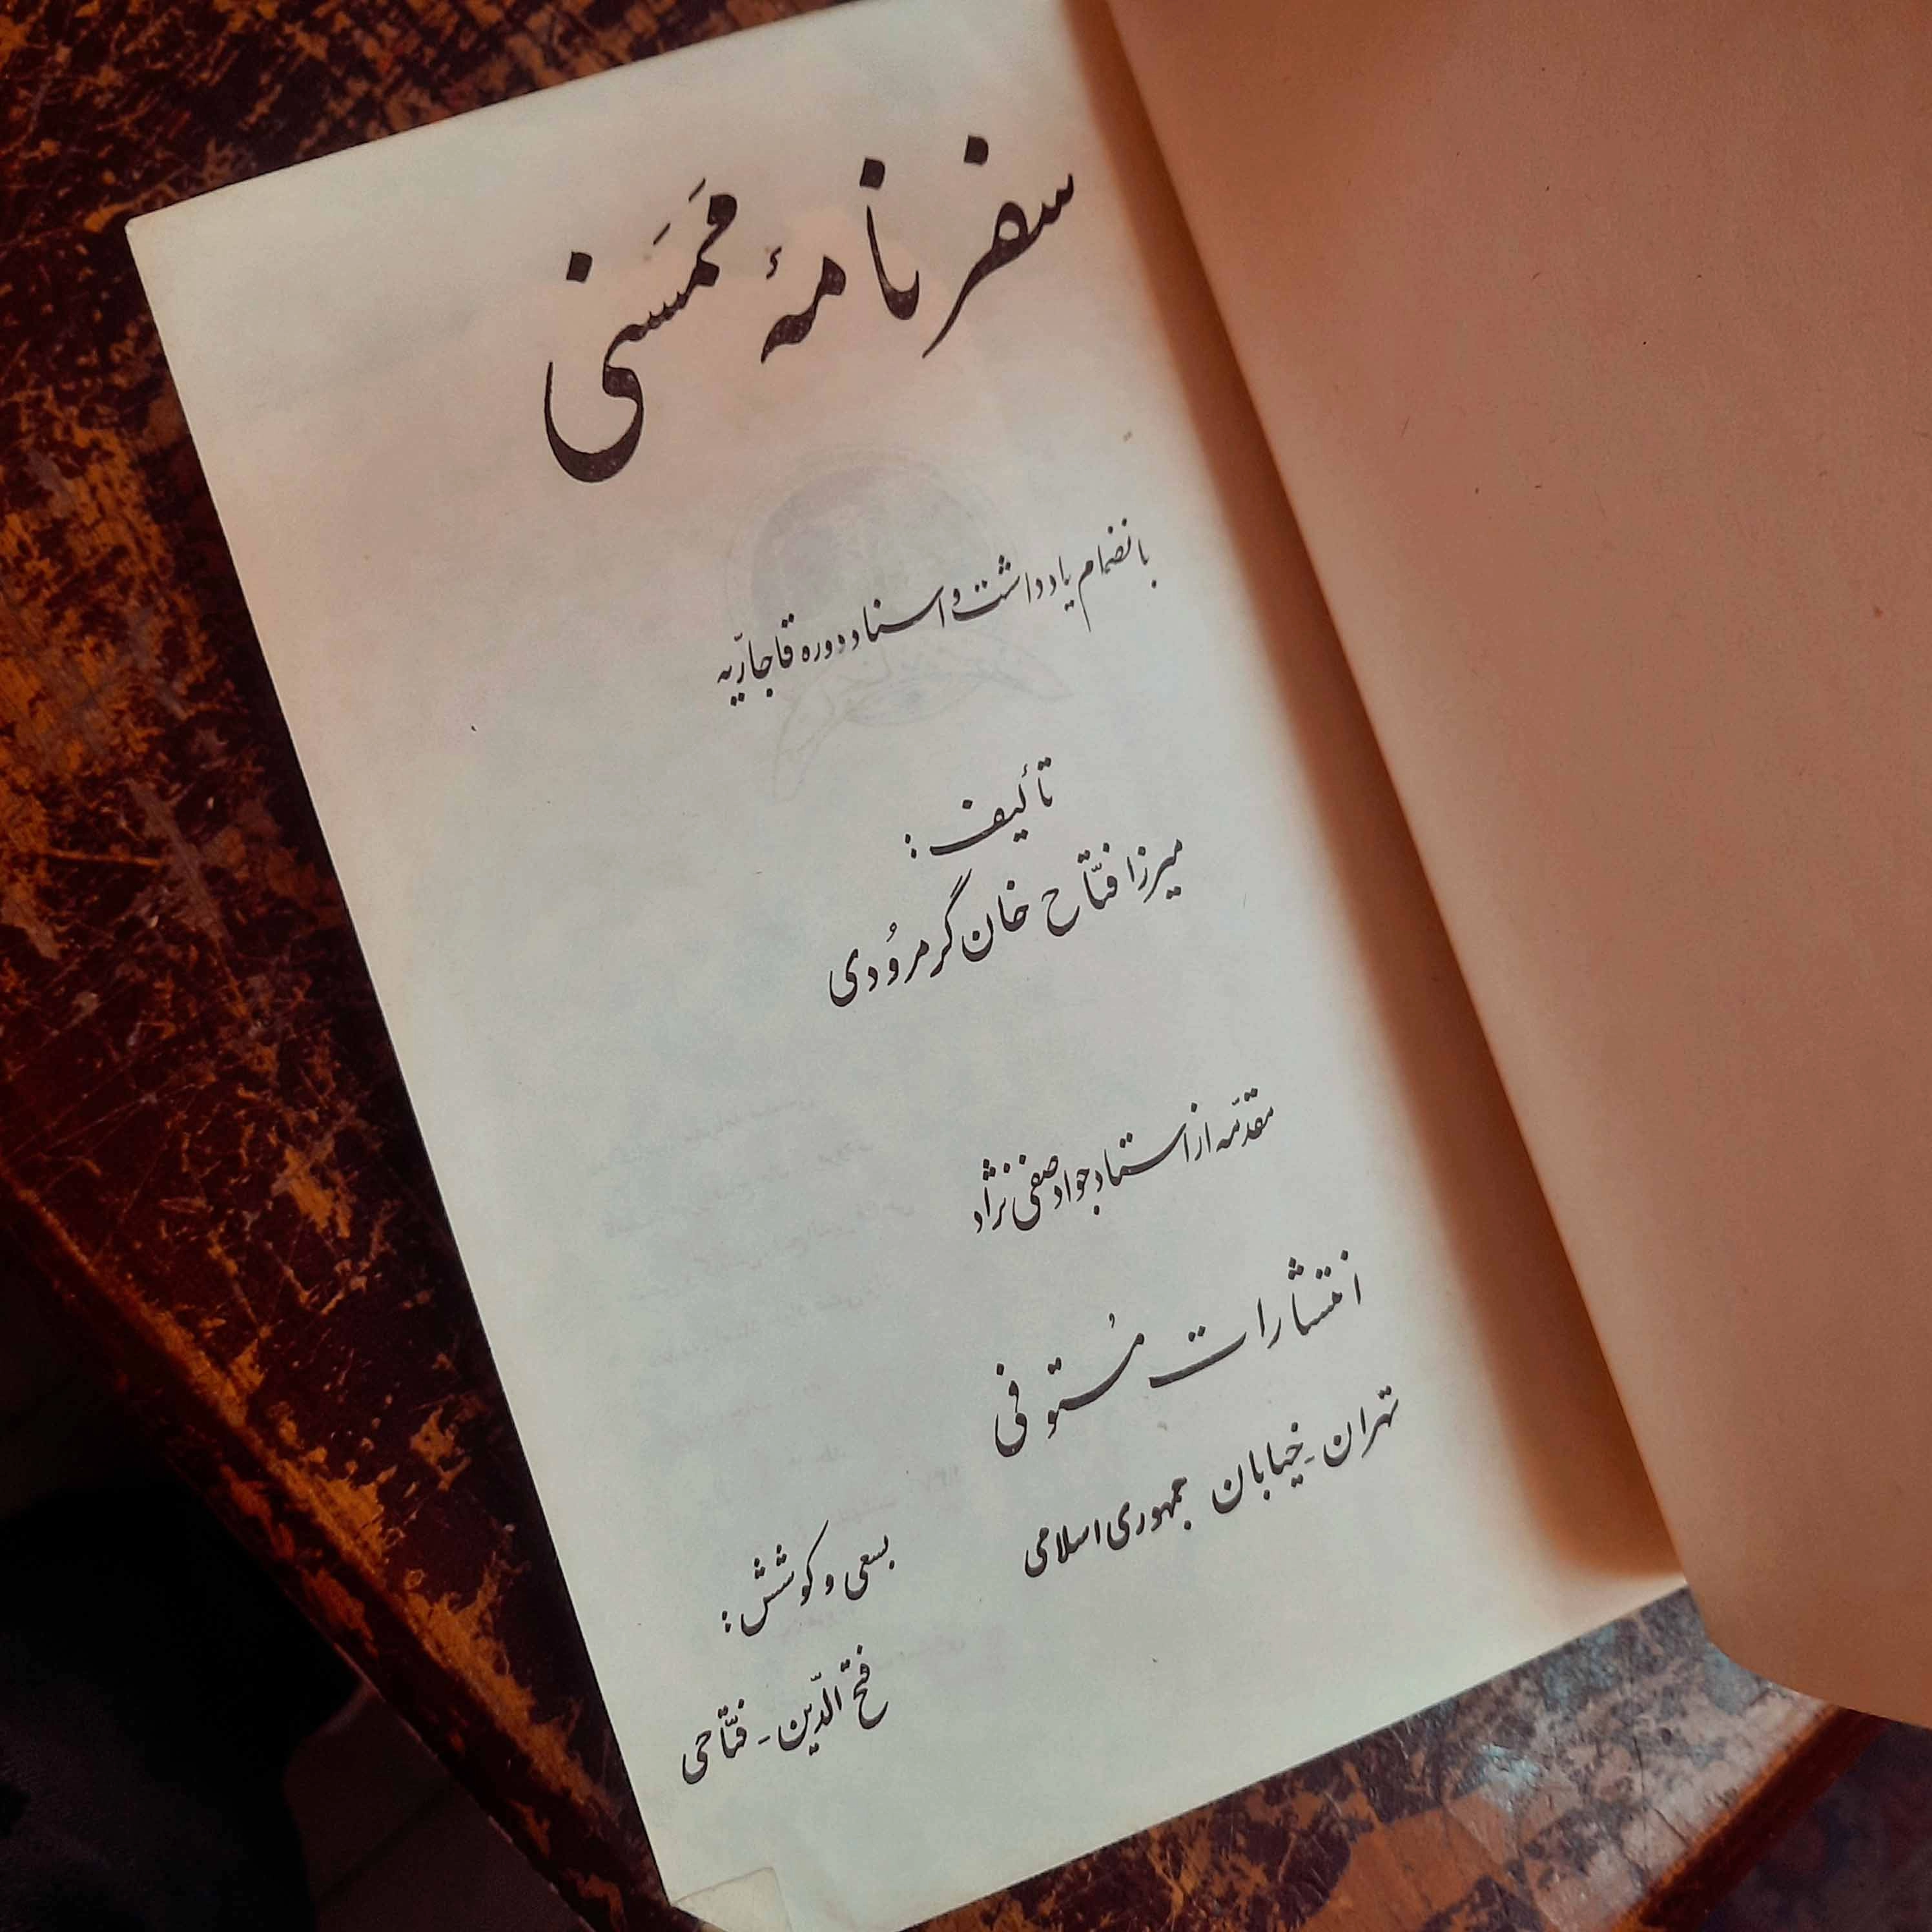 سفرنامهٔ مَمَسَنی
بانضمام یادداشت و اسناد دوره قاجاریّه
تألیف :
میرزا فتّاح خان گرمرُودی
مقدّمه از استاد جواد صفی نژاد
انتشارات مُستوفی
تهران - خیابان جمهوری اسلامی
بسعی و کوشش :
فتح الدّین - فتّاحی